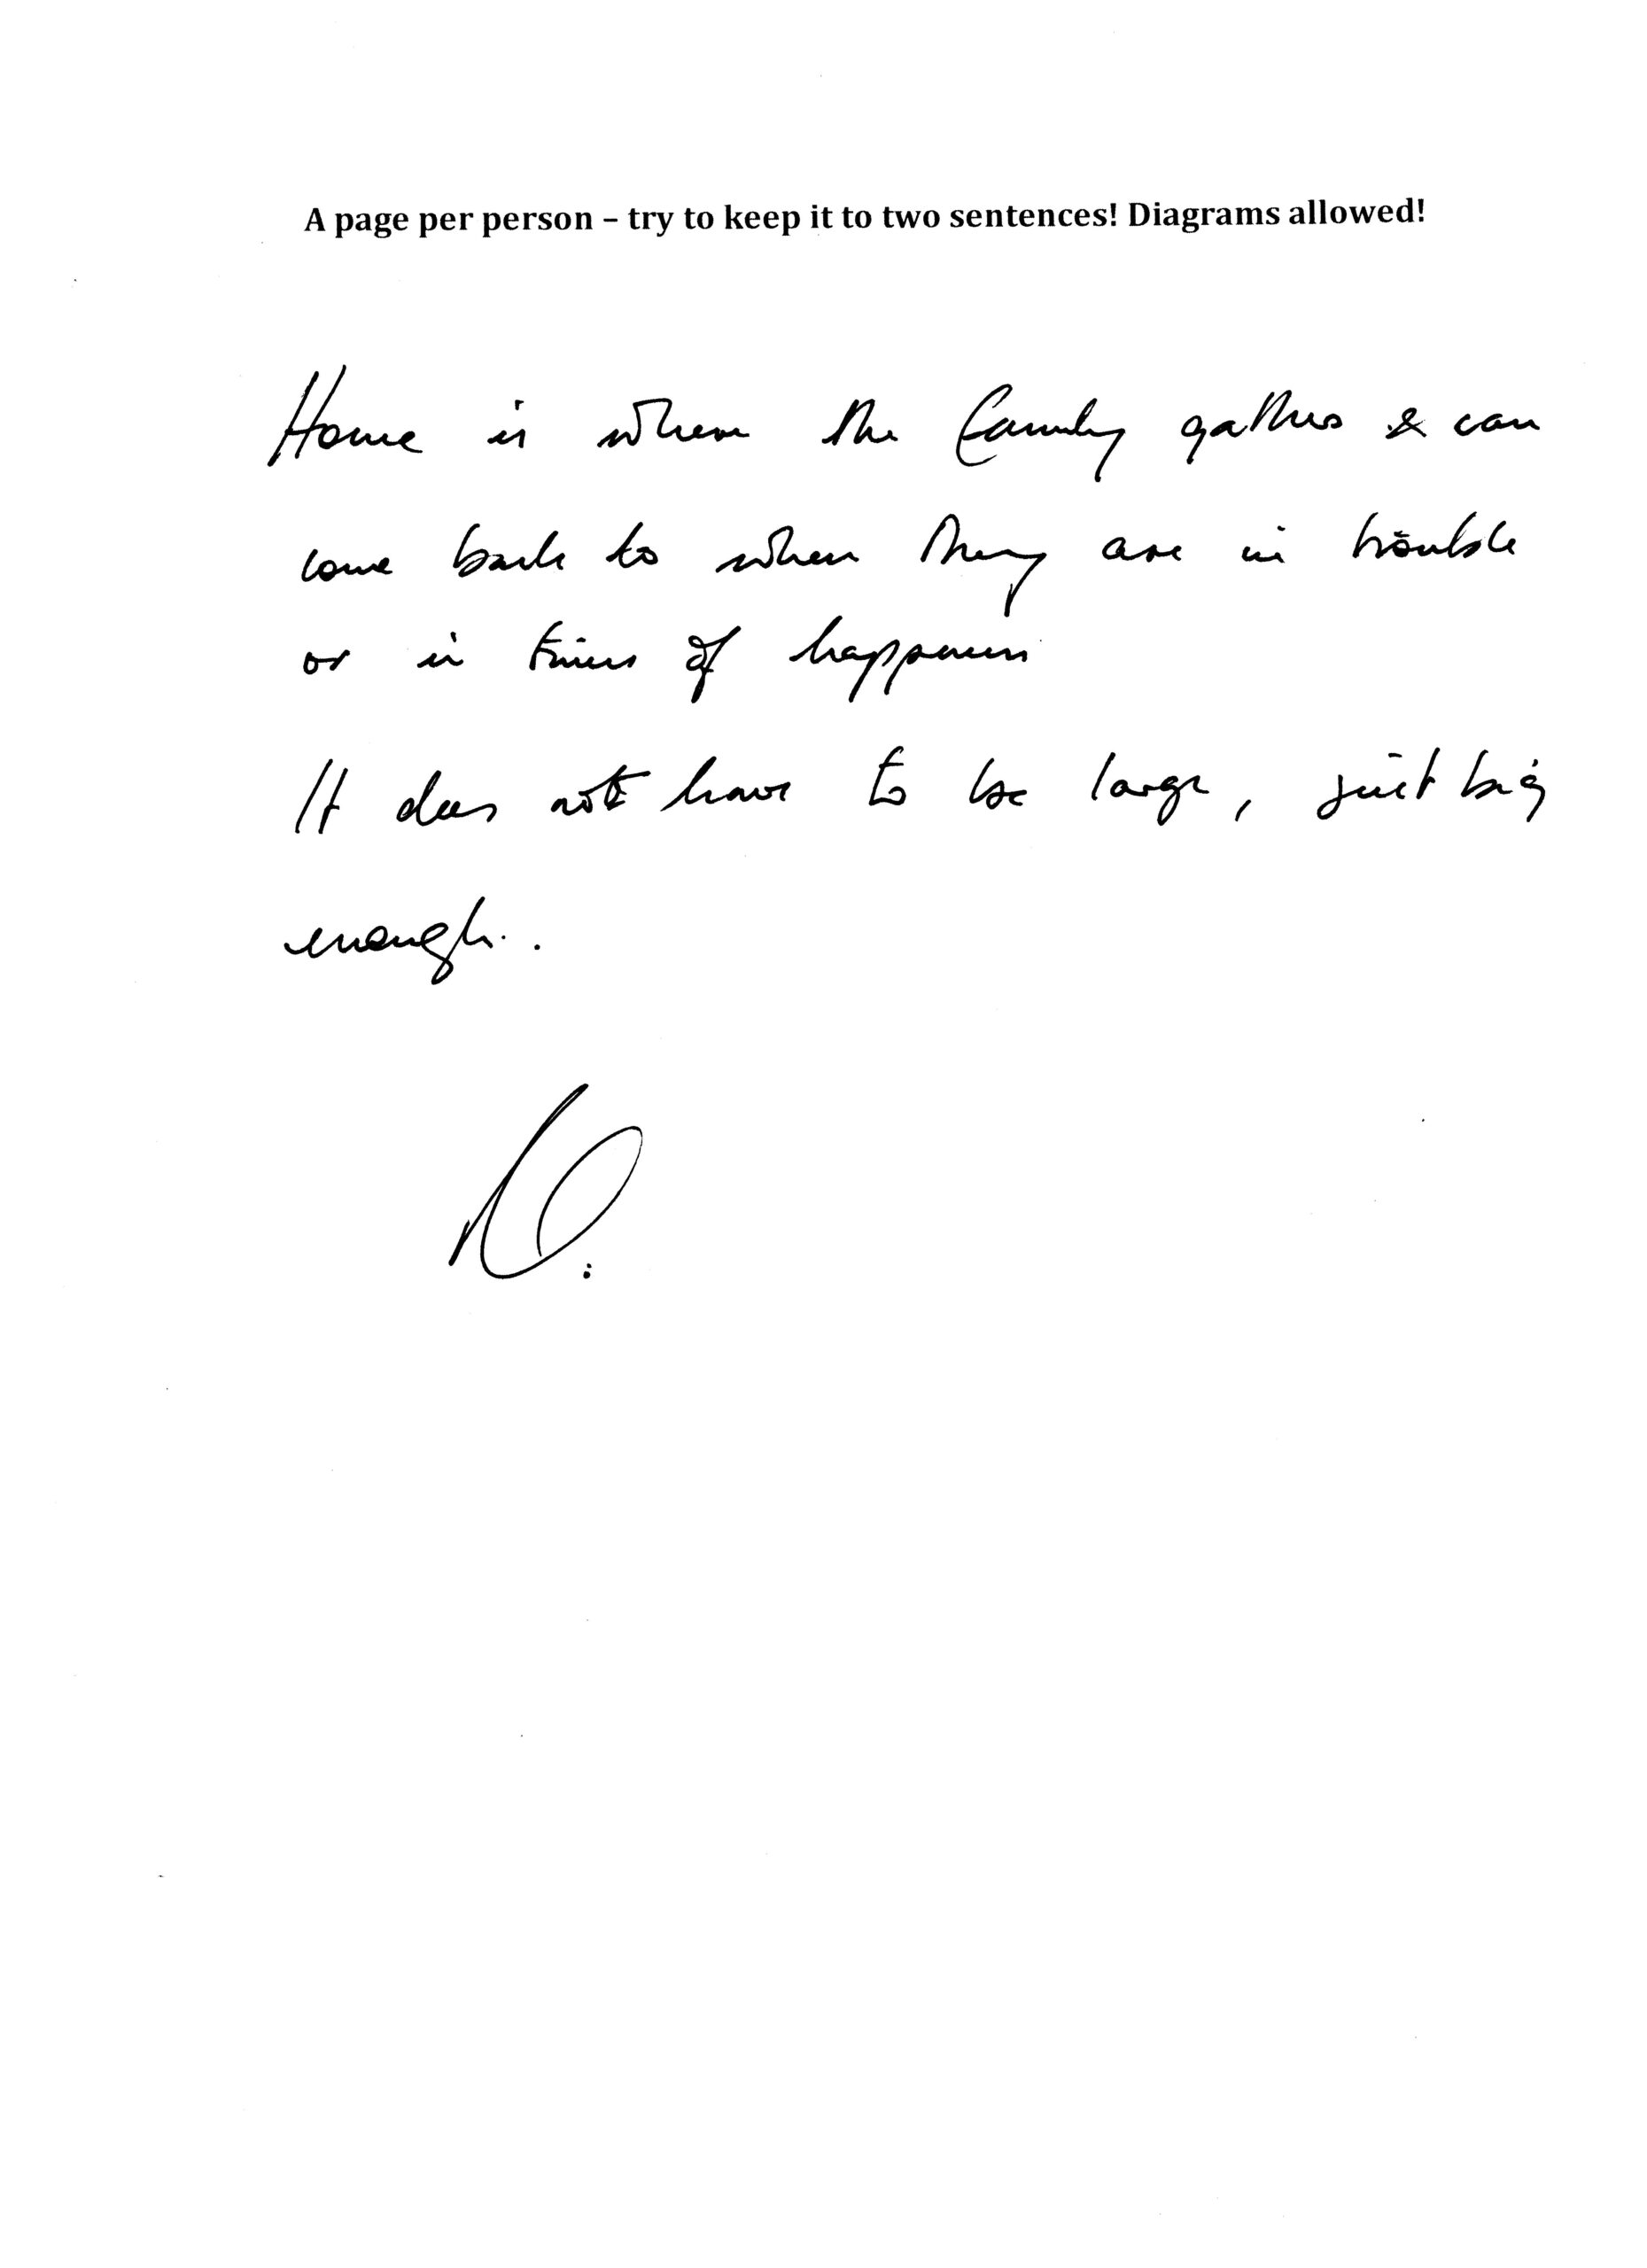 A page per person – try to keep it to two sentences! Diagrams allowed!
Home is where the family gathers & can
come back to when they are in trouble
or in times of happiness
It does not have to be large, just big
enough..